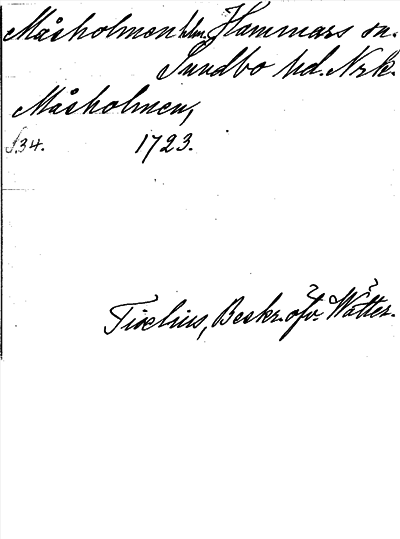 Måsholmen hlm. Hammars sn.
Sundbo hd. Nrk.
Måsholmen,
S.34. 1723.
Tiselius, Beskr. öfv. Wätter.